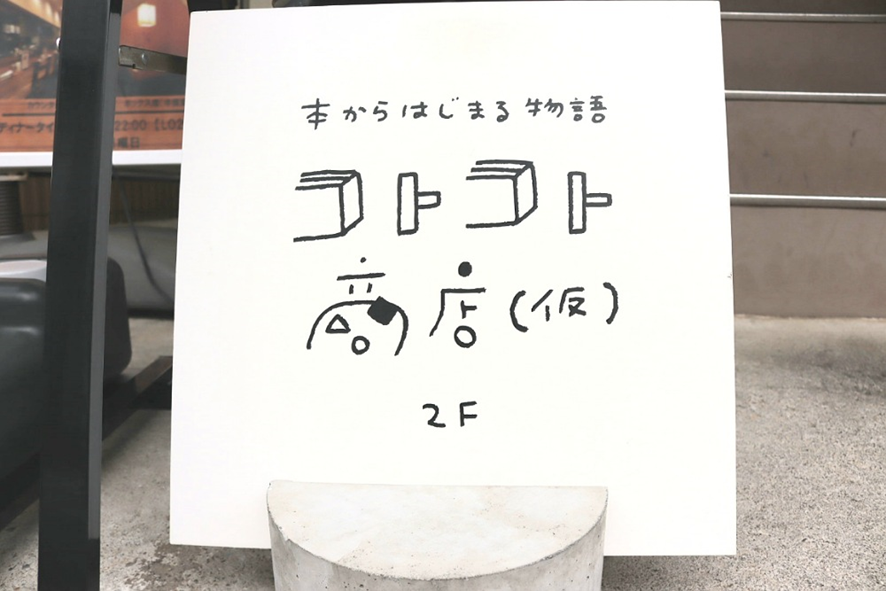 本からはじまる物語
コトコト
商店(仮)
2F
ディナータイ 22:00【LO2
曜日